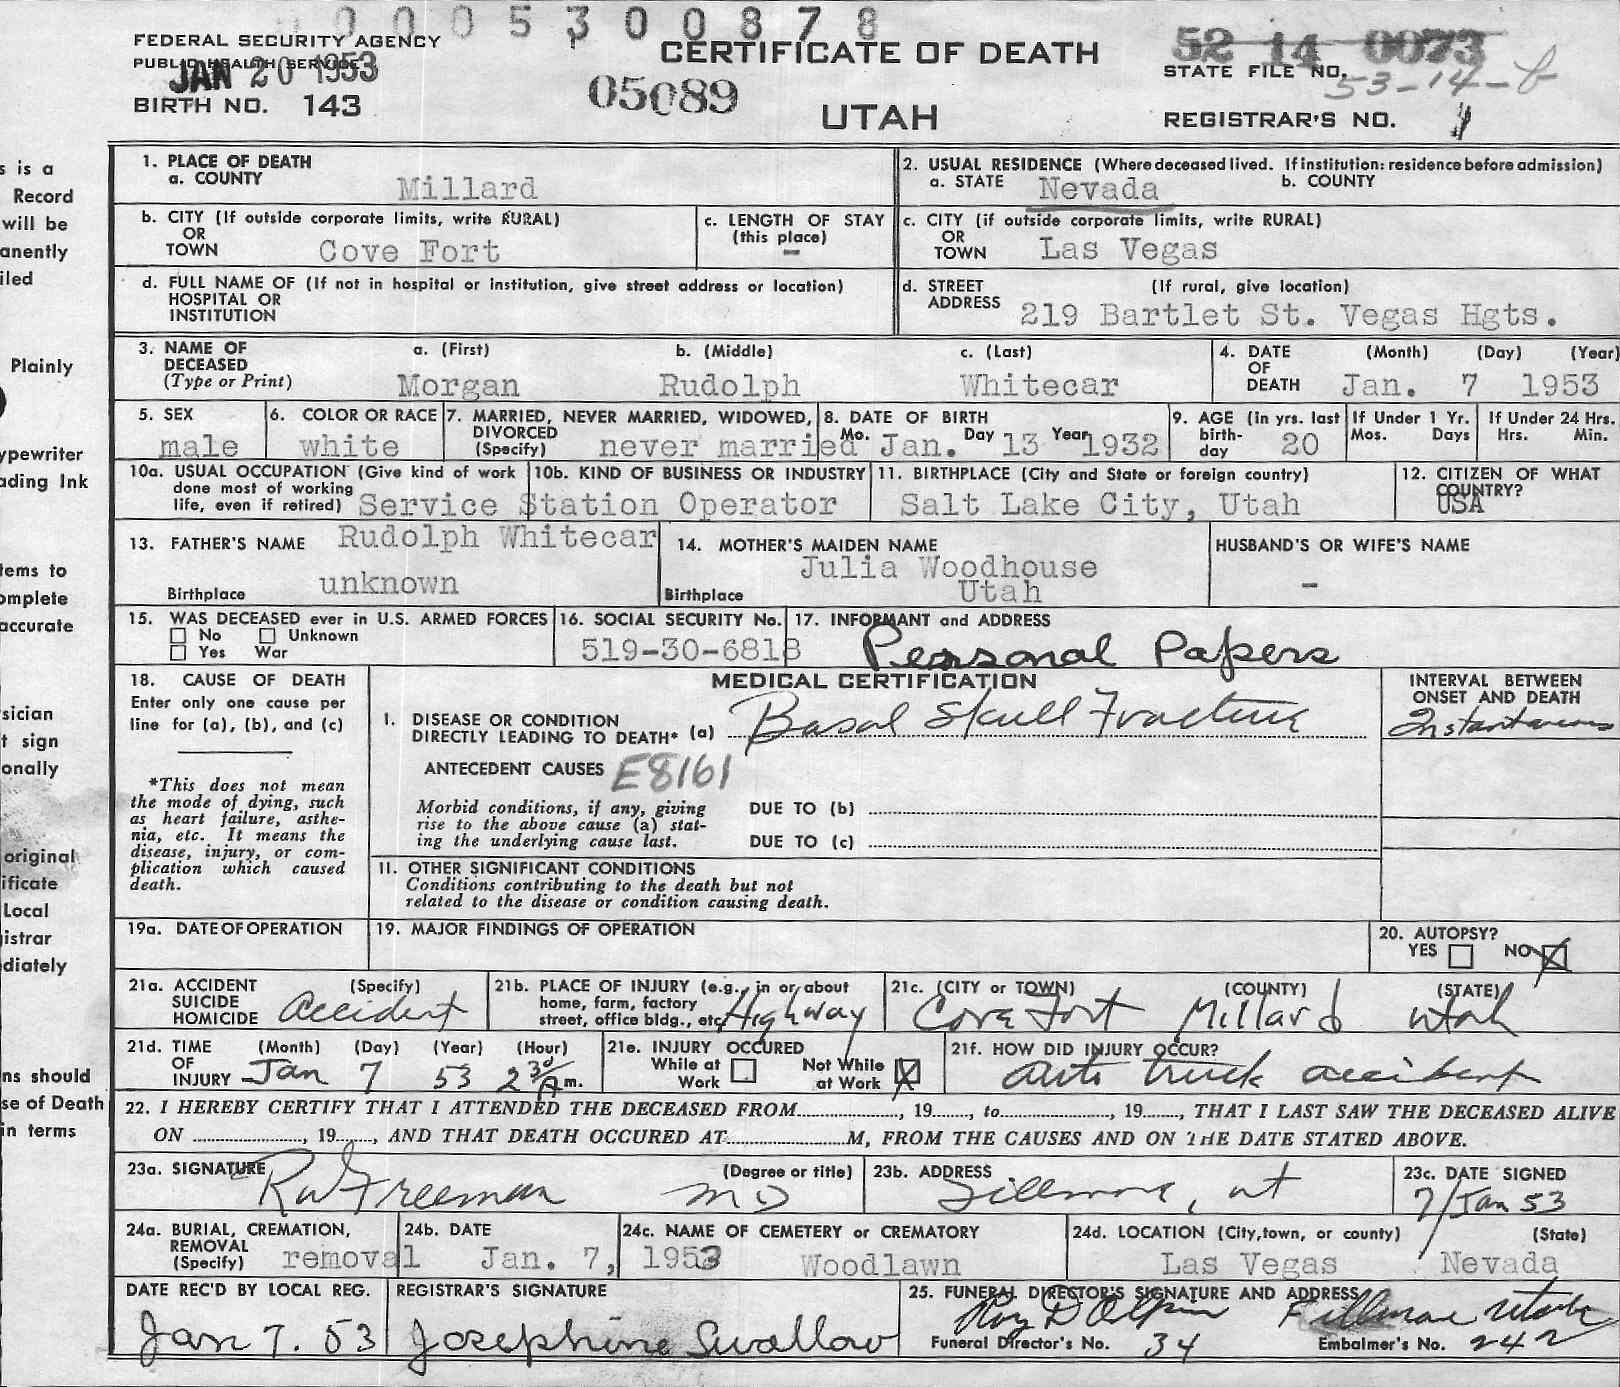 0005300878
FEDERAL SECURITY AGENCY
PUBLIC HEALTH SERVICE
JAN 20 1953
BIRTH NO. 143
CERTIFICATE OF DEATH
05089
UTAH
52 14 0073
STATE FILE NO.
53-14-
REGISTRAR'S NO. 1
s is a
Record
will be
anently
iled
Plainly
ypewriter
ading Ink
tems to
omplete
accurate
sician
t sign
onally
original
ificate
Local
istrar
diately
ns should
se of Death
in terms
1. PLACE OF DEATH
a. COUNTY Millard
2. USUAL RESIDENCE (Where deceased lived. If institution: residence before admission)
a. STATE Nevada b. COUNTY
b. CITY (If outside corporate limits, write RURAL)
OR
TOWN Cove Fort
c. LENGTH OF STAY
(this place)
-
c. CITY (if outside corporate limits, write RURAL)
OR
TOWN Las Vegas
d. FULL NAME OF (If not in hospital or institution, give street address or location)
HOSPITAL OR
INSTITUTION
d. STREET (If rural, give location)
ADDRESS 219 Bartlet St. Vegas Hgts.
3. NAME OF a. (First) b. (Middle) c. (Last)
DECEASED
(Type or Print) Morgan Rudolph Whitecar
4. DATE (Month) (Day) (Year)
OF
DEATH Jan. 7 1953
5. SEX
male
6. COLOR OR RACE
white
7. MARRIED, NEVER MARRIED, WIDOWED,
DIVORCED
(Specify) never married
8. DATE OF BIRTH
Mo. Jan. Day 13 Year 1932
9. AGE (in yrs. last
birth-
day 20
If Under 1 Yr.
Mos. Days
If Under 24 Hrs.
Hrs. Min.
10a. USUAL OCCUPATION (Give kind of work
done most of working
life, even if retired) Service Station Operator
10b. KIND OF BUSINESS OR INDUSTRY
11. BIRTHPLACE (City and State or foreign country)
Salt Lake City, Utah
12. CITIZEN OF WHAT
COUNTRY?
USA
13. FATHER'S NAME Rudolph Whitecar
Birthplace unknown
14. MOTHER'S MAIDEN NAME
Julia Woodhouse
Birthplace Utah
HUSBAND'S OR WIFE'S NAME
-
15. WAS DECEASED ever in U.S. ARMED FORCES
No Unknown
Yes War
16. SOCIAL SECURITY No.
519-30-6818
17. INFORMANT and ADDRESS
Personal Papers
18. CAUSE OF DEATH
Enter only one cause per
line for (a), (b), and (c)
*This does not mean
the mode of dying, such
as heart failure, asthe-
nia, etc. It means the
disease, injury, or com-
plication which caused
death.
MEDICAL CERTIFICATION
I. DISEASE OR CONDITION
DIRECTLY LEADING TO DEATH* (a) Basal Skull Fracture
ANTECEDENT CAUSES E8161
Morbid conditions, if any, giving
rise to the above cause (a) stat-
ing the underlying cause last.
DUE TO (b)
DUE TO (c)
II. OTHER SIGNIFICANT CONDITIONS
Conditions contributing to the death but not
related to the disease or condition causing death.
INTERVAL BETWEEN
ONSET AND DEATH
Instantaneous
19a. DATE OF OPERATION
19. MAJOR FINDINGS OF OPERATION
20. AUTOPSY?
YES NO X
21a. ACCIDENT (Specify)
SUICIDE
HOMICIDE Accident
21b. PLACE OF INJURY (e.g., in or about
home, farm, factory
street, office bldg., etc. Highway
21c. (CITY or TOWN) (COUNTY) (STATE)
Cove Fort Millard Utah
21d. TIME (Month) (Day) (Year) (Hour)
OF
INJURY Jan 7 53 2 30 A m.
21e. INJURY OCCURED
While at Not While
Work at Work X
21f. HOW DID INJURY OCCUR?
auto truck accident
22. I HEREBY CERTIFY THAT I ATTENDED THE DECEASED FROM , 19 , to , 19 , THAT I LAST SAW THE DECEASED ALIVE
ON , 19 , AND THAT DEATH OCCURED AT M, FROM THE CAUSES AND ON THE DATE STATED ABOVE.
23a. SIGNATURE (Degree or title)
RW Freeman MD
23b. ADDRESS
Fillmore, ut
23c. DATE SIGNED
7/Jan 53
24a. BURIAL, CREMATION,
REMOVAL
(Specify) removal
24b. DATE
Jan. 7, 1953
24c. NAME OF CEMETERY or CREMATORY
Woodlawn
24d. LOCATION (City, town, or county) (State)
Las Vegas Nevada
DATE REC'D BY LOCAL REG.
Jan 7. 53
REGISTRAR'S SIGNATURE
Josephine Swallow
25. FUNERAL DIRECTOR'S SIGNATURE AND ADDRESS
Roy D Olpin Fillmore Utah
Funeral Director's No. 34 Embalmer's No. 242